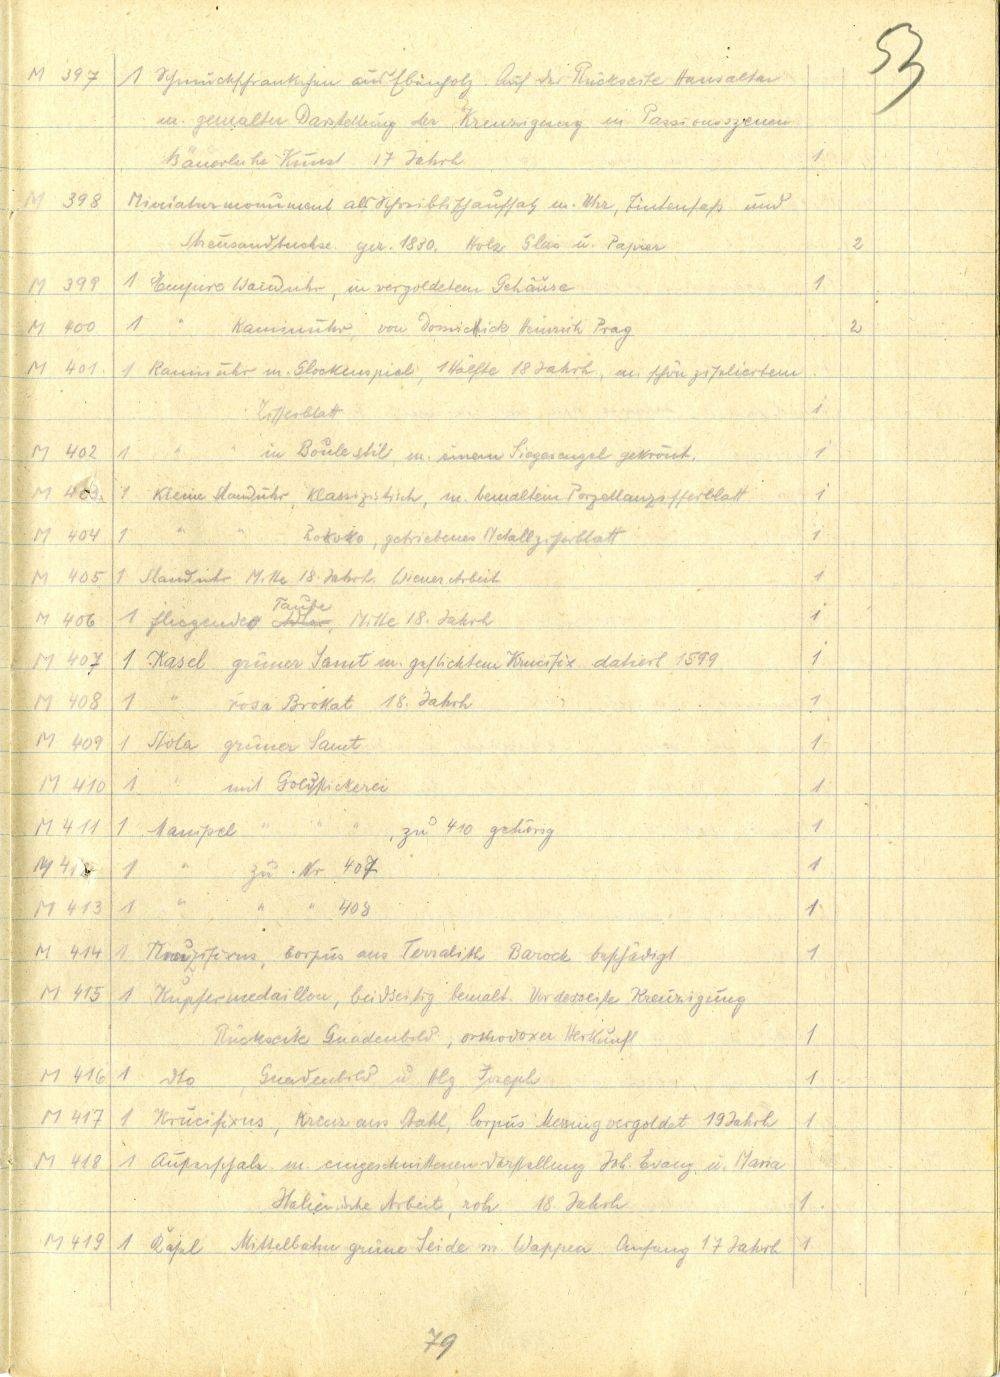 53
M 397 1 Schmuckschränkchen aus Ebenholz. Auf der Rückseite Hausaltar
m. gemalter Darstellung der Kreuzigung u. Passionsszenen
Bäuerliche Kunst 17 Jahrh 1
M 398 Miniaturmonument als Schreibtischaufsatz m. Uhr, Tintenfaß und
Streusandbuchse gez. 1830. Holz Glas u. Papier 2
M 399 1 Empire Wanduhr, in vergoldetem Gehäuse 1
M 400 1 " Kaminuhr, von Heinrich Prag 2
M 401. 1 Kaminuhr m. Glockenspiel, 1 Hälfte 18 Jahrh, m. schön ziseliertem
Zifferblatt 1
M 402 1 " " in Boule stil, m. einem Siegesengel gekrönt. 1
M 403. 1 Kleine Standuhr, klassizistisch, m. bemaltem Porzellanzifferblatt 1
M 404 1 " " Rokoko, getriebenes Metallzifferblatt 1
M 405 1 Standuhr Mitte 18. Jahrh. Wiener Arbeit 1
M 406 1 fliegende Taube, Mitte 18. Jahrh 1
M 407 1 Kasel grüner Samt m. gestickten Krucifix datiert 1599 1
M 408 1 " rosa Brokat 18. Jahrh 1
M 409 1 Stola grüner Samt 1
M 410 1 " mit Goldstickerei 1
M 411 1 Manipel " " " , zu 410 gehörig 1
M 412 1 " zu Nr 407 1
M 413 1 " " " 408 1
M 414 1 Kruzifixus, Corpus aus Terralith Barock beschädigt 1
M 415 1 Kupfermedaillon, beidseitig bemalt. Vorderseite Kreuzigung
Rückseite Gnadenbild, orthodoxer Herkunft 1
M 416 1 dto , Gnadenbild u Hlg Joseph 1
M 417 1 Krucifixus, Kreuz aus Stahl, Corpus Messing vergoldet 19 Jahrh 1
M 418 1 Austerschale m. eingeschnittenen Darstellung Joh. Evang. u. Maria
Italienische Arbeit, roh 18. Jahrh 1.
M 419 1 Kasel Mittelbahn grüne Seide m. Wappen Anfang 17 Jahrh 1
79